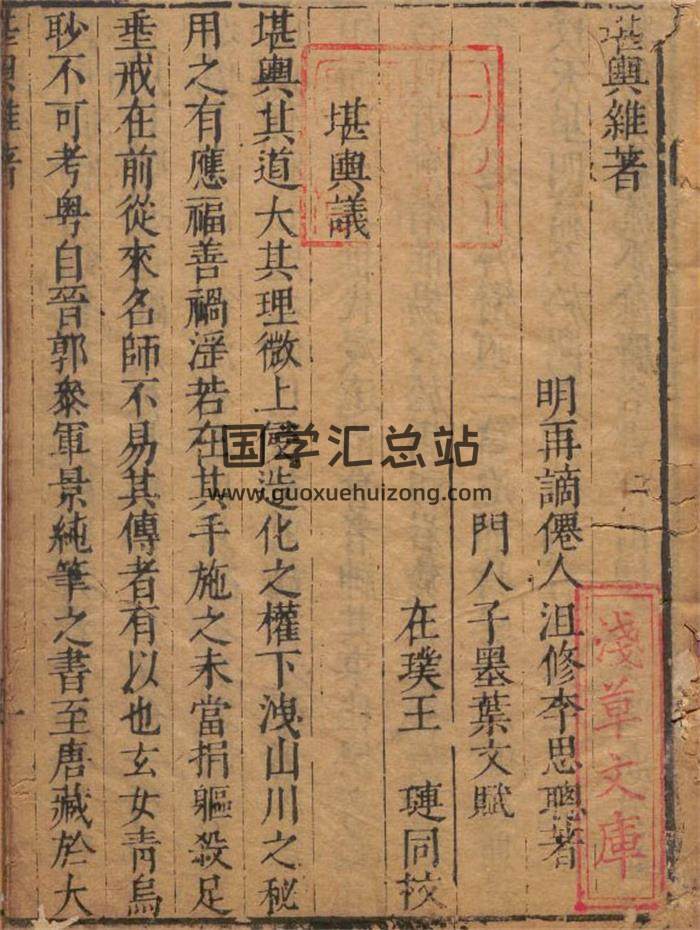 堪輿雜著
明再謫僊人沮修李思聰著
門人子墨葉文賦
在璞王　璉同校
堪輿議
堪輿其道大其理微上奪造化之權下洩山川之秘
用之有應福善禍淫若在其手施之未當捐軀殺足
垂戒在前從來名師不易其傳者有以也玄女青烏
眇不可考粤自晉郭叅軍景純筆之書至唐藏於大
堪輿雜著
淺草文庫
国学汇总站
www.guoxuehuizong.com